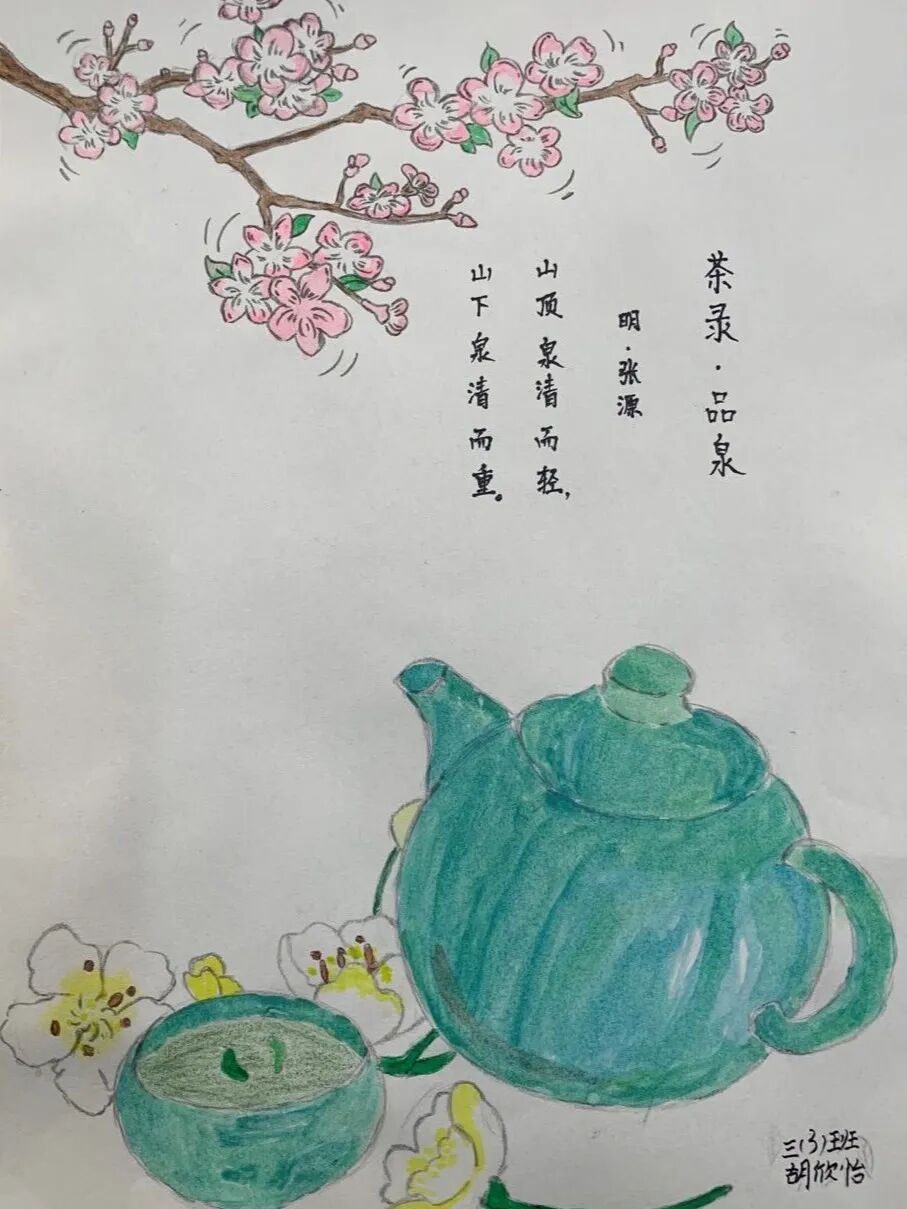 茶录·品泉
明·张源
山顶泉清而轻，
山下泉清而重。
三(3)班
胡欣怡